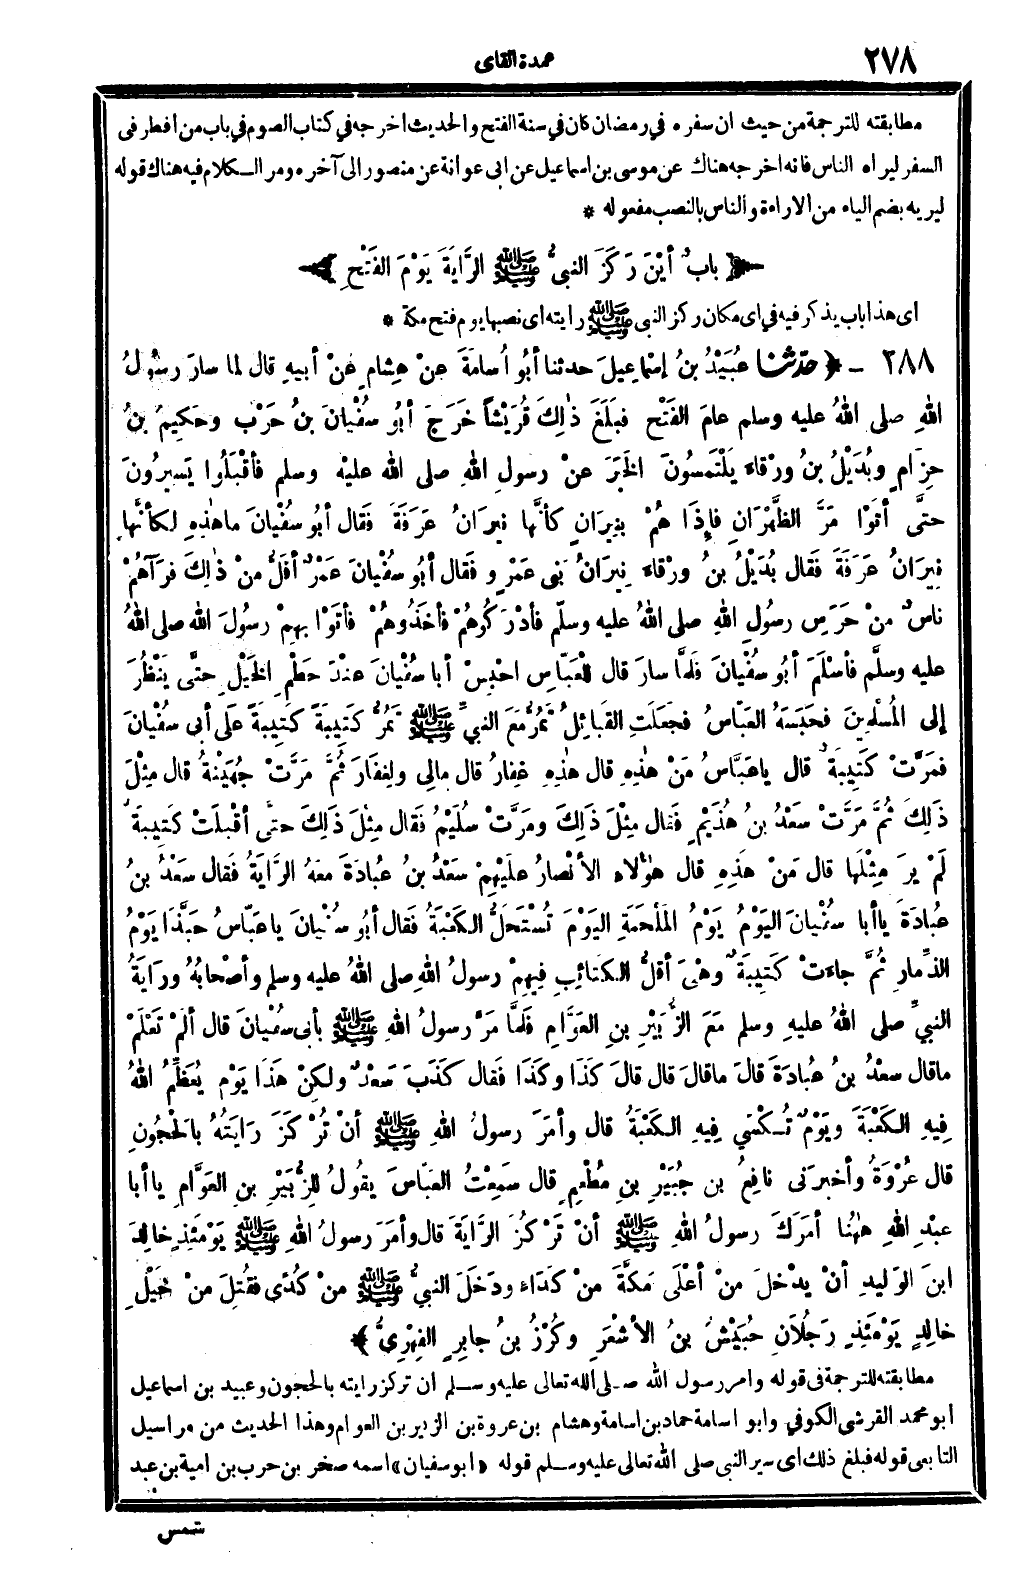 ٢٧٨
عمدة القاى
مطابقته للترجمة من حيث ان سفره في رمضان كان في سنة الفتح والحديث اخرجه في كتاب الصوم في باب من افطر فى
السفر ليراه الناس فانه اخرجه هناك عن موسى بن اسماعيل عن ابى عوانة عن منصور الى آخره ومر الكلام فيه هناك قوله
ليريه بضم الياء من الاراءة والناس بالنصب مفعوله *
﴿ بابٌ أيْنَ رَكَزَ النبىُّ ﷺ الرَّايَةَ يَوْمَ الفَتْحِ ﴾
اى هذا باب يذكر فيه في اى مكان ركز النبى ﷺ رايته اى نصبها يوم فتح مكة *
٢٨٨ - ﴿ حدّثنا عُبَيْدُ بنُ إسْماعِيلَ حدثنا أبُو أُسامَةَ عنْ هِشامٍ عنْ أبيهِ قال لما سارَ رسُولُ
اللهِ صلى اللهُ عليه وسلم عامَ الفَتْحِ فبَلَغَ ذٰلِكَ قُرَيْشاً خَرَجَ أبُو سُفْيانَ بنُ حَرْبٍ وحَكِيمُ بنُ
حِزامٍ وبُدَيْلُ بنُ ورْقاءَ يَلْتَمِسُونَ الخَبَرَ عنْ رسولِ اللهِ صلى الله عليهْ وسلم فأقْبَلُوا يَسيرُونَ
حتَّى أتَوْا مَرَّ الظَّهْرَانِ فإذَا هُمْ بِنِيرَانٍ كأنَّها نِيرَانُ عَرَفَةَ فَقال أبُو سُفْيانَ ماهٰذِهِ لكأنَّها
نِيرَانُ عَرَفَةَ فَقال بُدَيْلُ بنُ ورْقاءَ نِيرَانُ بَنِى عَمْرٍو فَقال أبُو سُفْيانَ عَمْرٌو أقَلُّ منْ ذٰلِكَ فَرَآهُمْ
ناسٌ منْ حَرَسِ رسُولِ اللهِ صلى اللهُ عليه وسلّم فأدْرَكُوهُمْ فأخَذُوهُمْ فأتَوْا بهِمْ رسُولَ الله صلى اللهُ
عليه وسلَّم فأسْلَمَ أبُو سُفْيانَ فلَمَّا سارَ قال لِلْعَبّاسِ احْبِسْ أبا سُفْيانَ عنْدَ حَطْمِ الخَيْلِ حتَّى يَنْظُرَ
إلى المُسْلِمِينَ فحَبَسَهُ العَبَّاسُ فجعَلَتِ القَبائِلُ تَمُرُّ مَعَ النبيِّ ﷺ تَمُرُّ كَتِيبَةً كَتِيبَةً عَلَى أبى سُفْيانَ
فمَرَّتْ كَتِيبَةٌ قال ياعَبَّاسُ مَنْ هٰذِهِ قال هٰذِهِ غِفارُ قال مالِى ولِغِفارَ ثُمَّ مَرَّتْ جُهَيْنَةُ قال مِثْلَ
ذٰلِكَ ثُمَّ مَرَّتْ سَعْدُ بنُ هُذَيْمٍ فَقال مِثْلَ ذٰلِكَ ومَرَّتْ سُلَيْمُ فَقال مِثْلَ ذٰلِكَ حتَّى أقْبلَتْ كَتِيبَةٌ
لَمْ يرَ مِثْلَها قال مَنْ هَذِهِ قال هٰؤلاءِ الأنْصارُ علَيْهِمْ سَعْدُ بنُ عُبادَةَ معَهُ الرَّايَةُ فَقال سَعْدُ بنُ
عُبادَةَ ياأبا سُفْيانَ اليَوْمُ يَوْمُ المَلْحَمَةِ اليَوْمَ تُسْتَحَلُّ الكَعْبَةُ فَقال أبُو سُفْيانَ ياعَبَّاسُ حَبَّذَا يَوْمُ
الذِّمارِ ثُمَّ جاءَتْ كَتِيبَةٌ وهْىَ أقَلُّ الكَتائِبِ فِيهِمْ رسولُ اللهِ صلى اللهُ عليه وسلم وأصْحابُهُ ورَايَةُ
النبيِّ صلى اللهُ عليهِ وسلم مَعَ الزُّبَيْرِ بنِ العَوَّامِ فَلمَّا مَرَّ رسولُ اللهِ ﷺ بأبى سُفْيانَ قال ألَمْ تَعْلَمْ
ماقال سعْدُ بنُ عُبادَةَ قالَ ماقالَ قال قالَ كَذَا وكَذَا فَقال كَذَبَ سَعْدٌ ولكِنْ هَذَا يَوْم يُعَظِّمُ اللهُ
فِيهِ الكَعْبَةَ ويَوْمٌ تُكْسَي فِيهِ الكَعْبَةُ قال وأمَرَ رسولُ اللهِ ﷺ أنْ تُرْكَزَ رَايَتُهُ بالْحَجُونِ
قال عُرْوَةُ وأخبرَنى نافِعُ بن جُبَيْرِ بنِ مُطْعِمٍ قال سَمِعْتُ العَبّاسَ يقُولُ للزُّبَيْرِ بنِ العَوَّامِ ياأبا
عبْدِ اللهِ هٰهُنا أمَرَكَ رسولُ اللهِ ﷺ أنْ تَرْكُزَ الرَّايَةَ قال وأمَرَ رسولُ اللهِ ﷺ يَوْمَئِذٍ خالِدَ
ابنَ الوَليدِ أنْ يدْخلَ منْ أعْلَى مَكَّةَ منْ كَدَاءَ ودَخَلَ النبىُّ ﷺ منْ كُدًى فقُتِلَ منْ خَيْلِ
خالِدٍ يَوْمَئِذٍ رَجُلاَنِ حُبَيْشُ بنُ الأشْعَرِ وكُرْزُ بنُ جابِرٍ الفِهْرِىُّ ﴾
مطابقته للترجمة فى قوله وامر رسول الله صلى الله تعالى عليه وسلم ان تركز رايته بالحجون وعبيد بن اسماعيل
ابو محمد القرشى الكوفي وابو اسامة حماد بن اسامة وهشام بن عروة بن الزبير بن العوام وهذا الحديث من مراسيل
التابعى قوله فبلغ ذلك اى سير النبى صلى الله تعالى عليه وسلم قوله «ابو سفيان» اسمه صخر بن حرب بن امية بن عبد
شمس